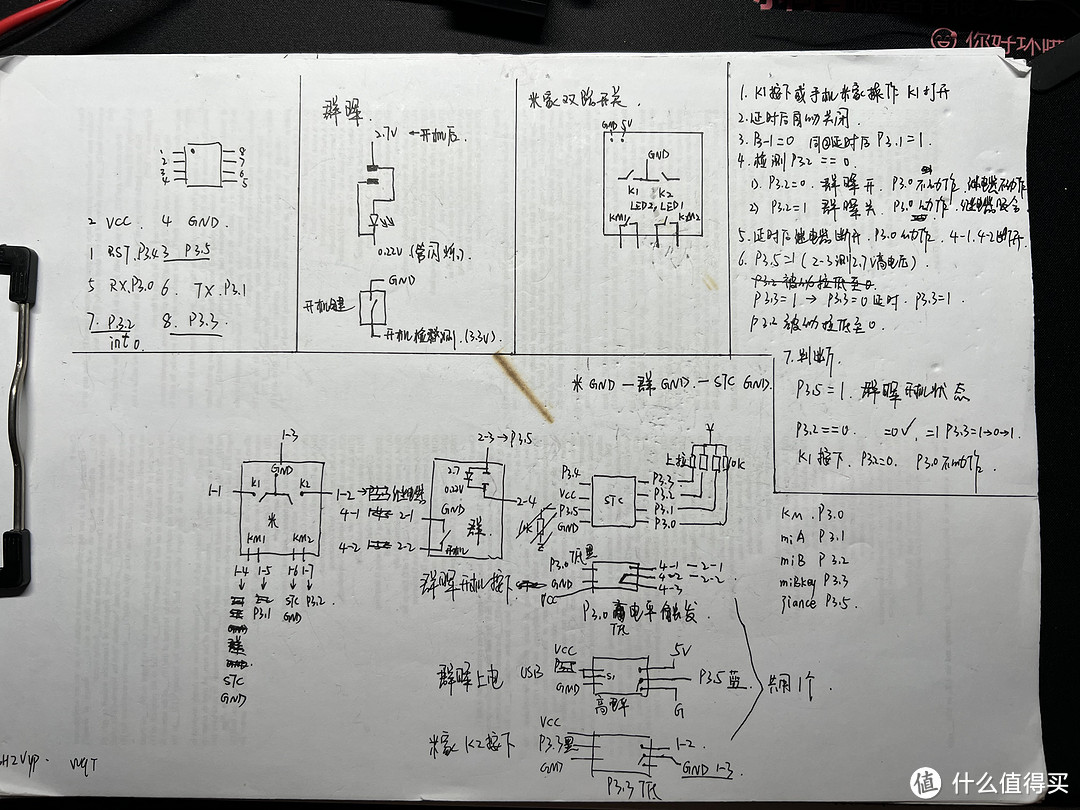 你好环喂
1
2
3
4
8
7
6
5
2 VCC. 4 GND.
1 RST.P3.4 3 P3.5
5 RX.P3.0 6. TX.P3.1
7. P3.2 8. P3.3.
int0.
群晖
2.7V ←开机后.
0.22V
GND
开机键
(3.3V)
米家双路开关.
GND 5V
GND
K1 K2
LED2, LED1
KM1 KM2
1. K1按下或手机米家操作 K1打开
2. 延时后自动关闭.
4. 检测P3.2 == 0.
1). P3.2=0. 群晖开. P3.0不动作. 继电器不动作
2) P3.2=1 群晖关. P3.0动作. 继电器吸合.
5. 延时后继电器断开. P3.0动作. 4-1.4-2断开.
6. P3.5=1 (2-3测2.7V高电压).
P3.2被动拉低至0.
P3.3=1 → P3.3=0 延时. P3.3=1.
P3.2被动拉低至0.
7. 判断.
P3.5=1. 群晖开机状态
P3.2==0. =0✓. =1 P3.3=1→0→1.
K1按下. P3.2=0. P3.0不动作.
米 GND — 群 GND. — STC GND.
1-3
GND
K1 K2
1-1
米
1-2→
KM1 KM2
1-4 1-5 1-6 1-7
P3.1 STC P3.2
GND
群
STC
GND
2-3→P3.5
2.7
0.22V
GND
群
开机
2-4
4-1 2-1
4-2 2-2
10K
上拉
P3.4
VCC
P3.5
GND
STC
P3.3
P3.2
P3.1
P3.0
群晖开机按下
P3.0 低
GND
VCC
4-1-2-1
4-2-2-2
4-3
P3.0 高电平触发
低
群晖上电 USB
VCC
GND
S1
高电平
5V
P3.5 蓝.
G
共用1个.
米家K2按下
VCC
P3.3
GND
1-2.
GND 1-3.
P3.3 低
KM. P3.0
miA P3.1
miB P3.2
miBkey P3.3
jiance P3.5.
值 什么值得买